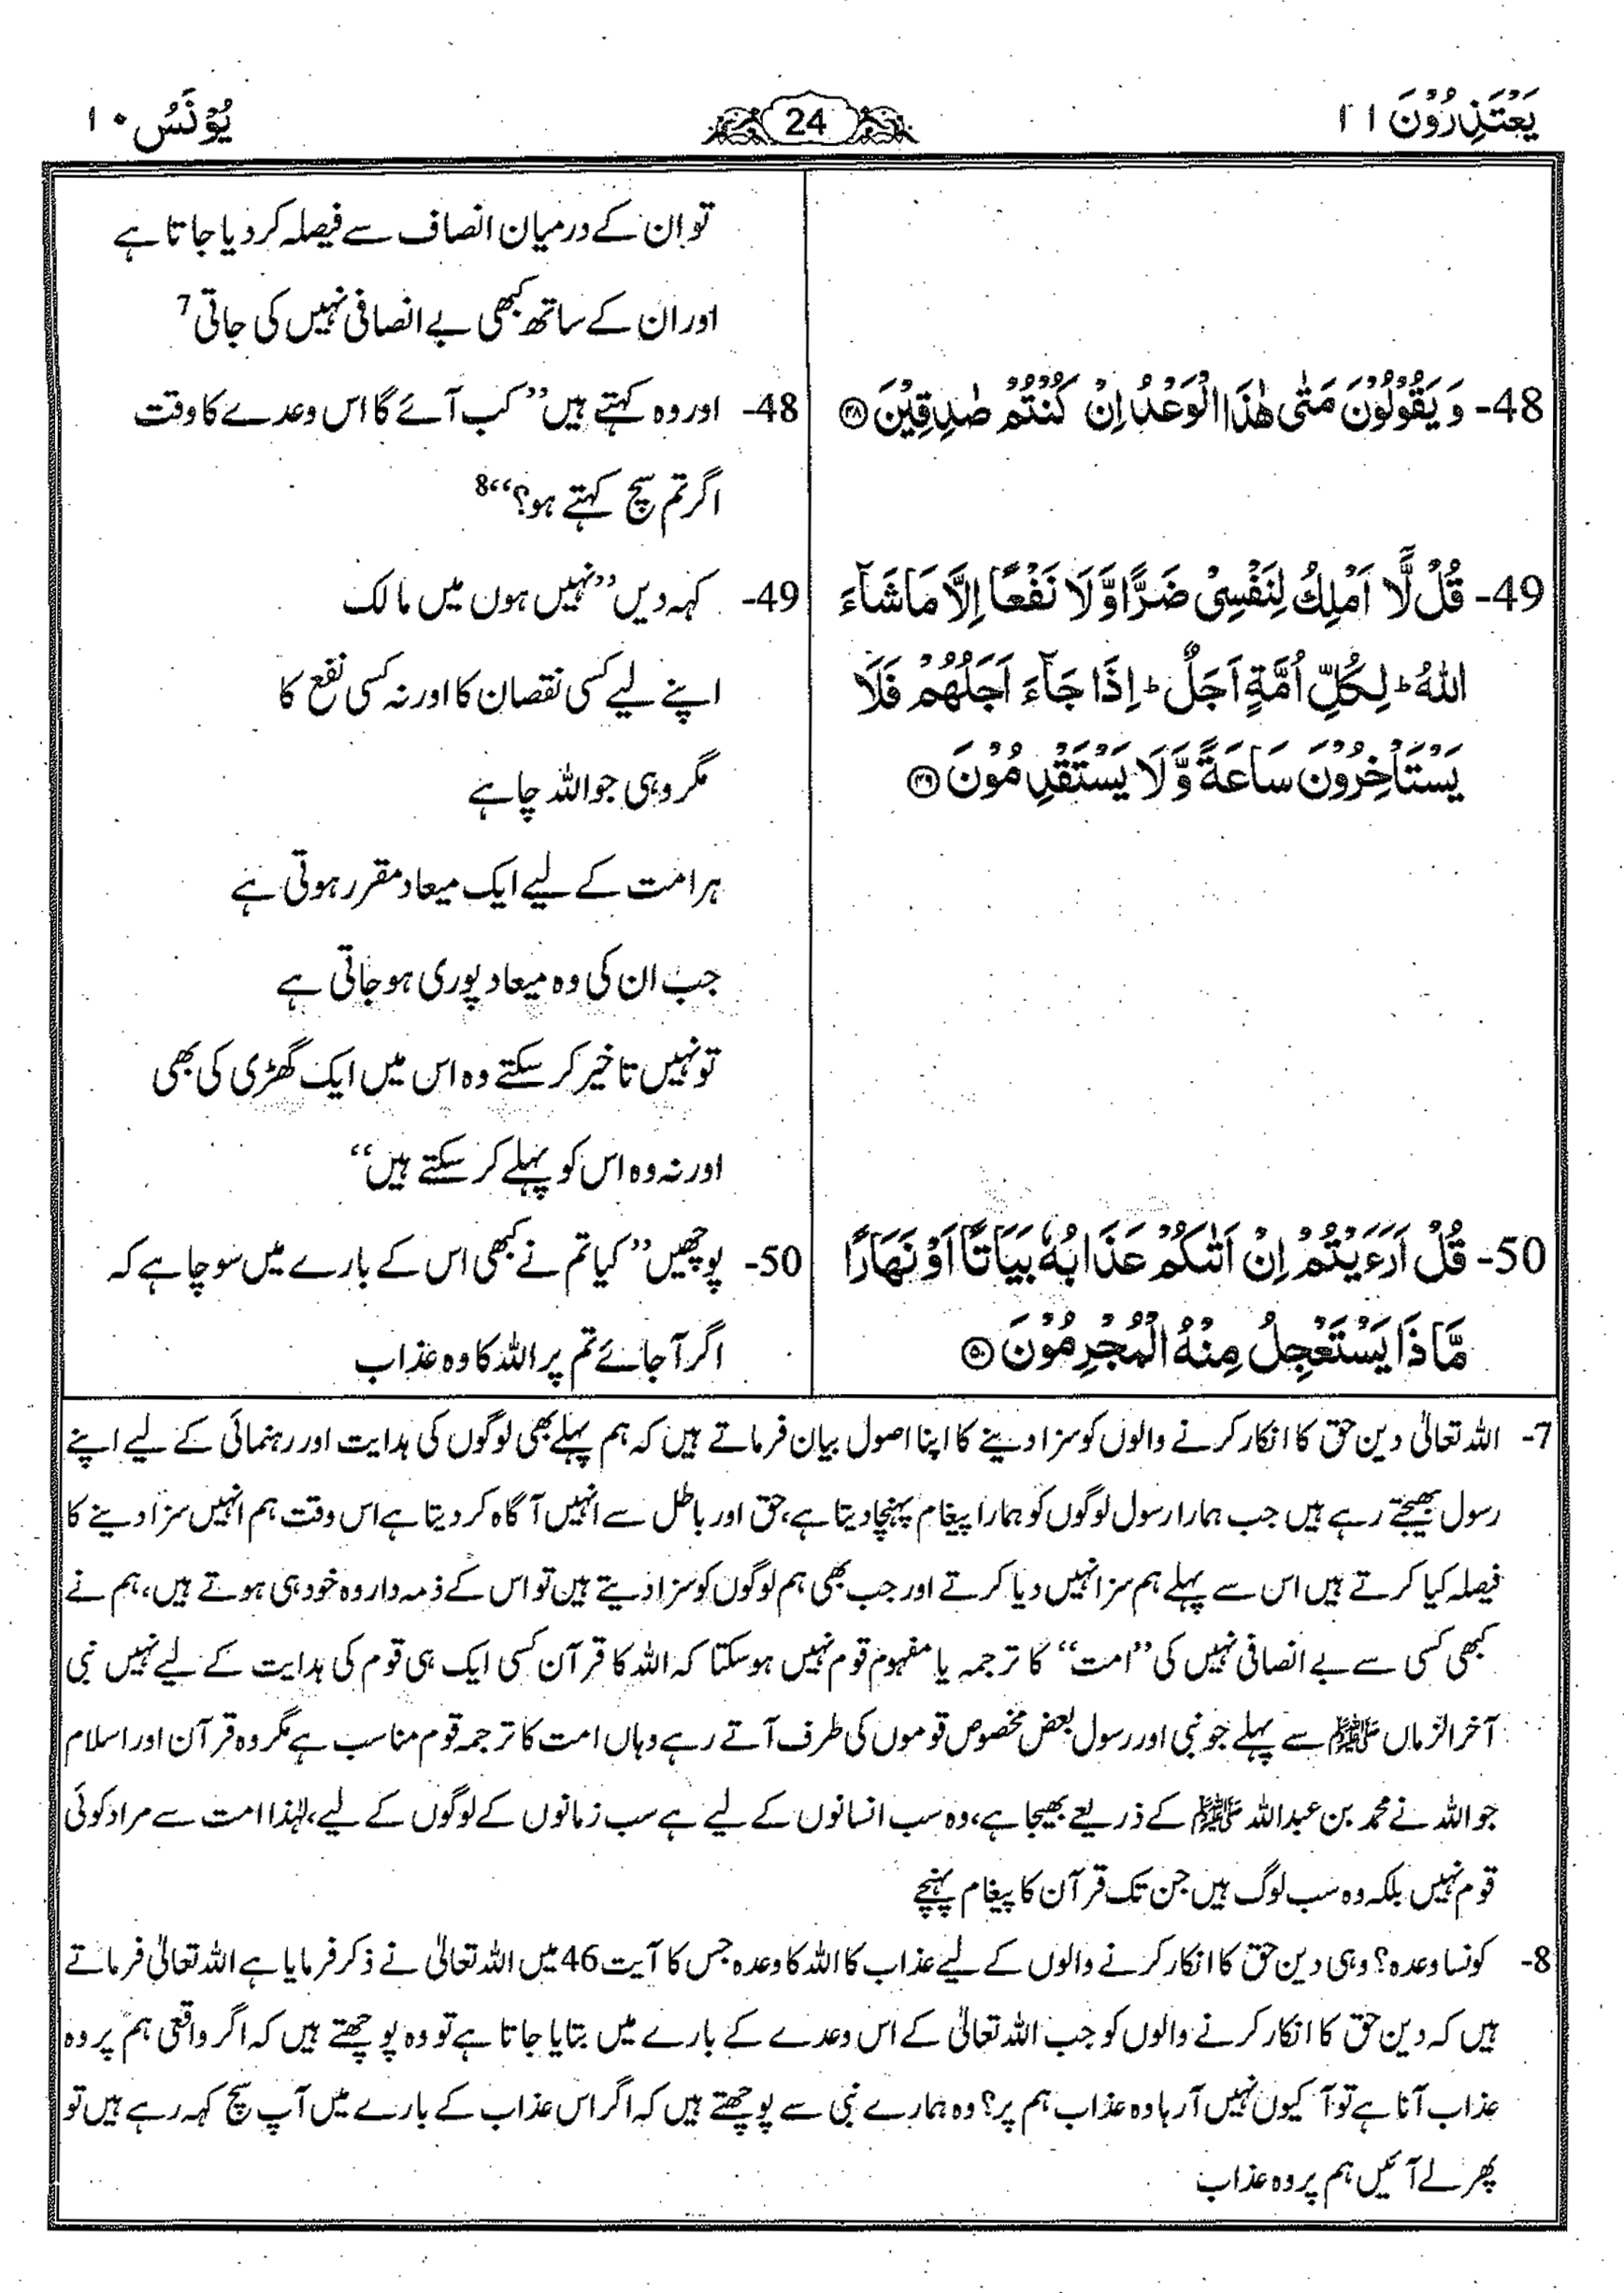 یَعْتَذِرُوْنَ ۱۱
24
یُوْنَسُ ۱۰
تو ان کے درمیان انصاف سے فیصلہ کر دیا جاتا ہے
اور ان کے ساتھ کبھی بے انصافی نہیں کی جاتی 7
48- وَ یَقُوْلُوْنَ مَتٰی هٰذَا الْوَعْدُ اِنْ كُنْتُمْ صٰدِقِیْنَ ﴿۴۸﴾
48- اور وہ کہتے ہیں ”کب آئے گا اس وعدے کا وقت
اگر تم سچ کہتے ہو؟“ 8
49- قُلْ لَّاۤ اَمْلِكُ لِنَفْسِیْ ضَرًّا وَّ لَا نَفْعًا اِلَّا مَا شَآءَ
اللّٰهُ ؕ لِكُلِّ اُمَّةٍ اَجَلٌ ؕ اِذَا جَآءَ اَجَلُهُمْ فَلَا
یَسْتَاْخِرُوْنَ سَاعَةً وَّ لَا یَسْتَقْدِمُوْنَ ﴿۴۹﴾
49- کہہ دیں ”نہیں ہوں میں مالک
اپنے لیے کسی نقصان کا اور نہ کسی نفع کا
مگر وہی جو اللہ چاہے
ہر امت کے لیے ایک میعاد مقرر ہوتی ہے
جب ان کی وہ میعاد پوری ہو جاتی ہے
تو نہیں تاخیر کر سکتے وہ اس میں ایک گھڑی کی بھی
اور نہ وہ اس کو پہلے کر سکتے ہیں“
50- قُلْ اَرَءَیْتُمْ اِنْ اَتٰىكُمْ عَذَابُهٗ بَیَاتًا اَوْ نَهَارًا
مَّا ذَا یَسْتَعْجِلُ مِنْهُ الْمُجْرِمُوْنَ ﴿۵۰﴾
50- پوچھیں ”کیا تم نے کبھی اس کے بارے میں سوچا ہے کہ
اگر آ جائے تم پر اللہ کا وہ عذاب
7- اللہ تعالیٰ دین حق کا انکار کرنے والوں کو سزا دینے کا اپنا اصول بیان فرماتے ہیں کہ ہم پہلے بھی لوگوں کی ہدایت اور رہنمائی کے لیے اپنے
رسول بھیجتے رہے ہیں جب ہمارا رسول لوگوں کو ہمارا پیغام پہنچا دیتا ہے، حق اور باطل سے انہیں آگاہ کر دیتا ہے اس وقت ہم انہیں سزا دینے کا
فیصلہ کیا کرتے ہیں اس سے پہلے ہم سزا نہیں دیا کرتے اور جب بھی ہم لوگوں کو سزا دیتے ہیں تو اس کے ذمہ دار وہ خود ہی ہوتے ہیں، ہم نے
کبھی کسی سے بے انصافی نہیں کی ”امت“ کا ترجمہ یا مفہوم قوم نہیں ہو سکتا کہ اللہ کا قرآن کسی ایک ہی قوم کی ہدایت کے لیے نہیں نبی
آخر الزماں ﷺ سے پہلے جو نبی اور رسول بعض مخصوص قوموں کی طرف آتے رہے وہاں امت کا ترجمہ قوم مناسب ہے مگر وہ قرآن اور اسلام
جو اللہ نے محمد بن عبداللہ ﷺ کے ذریعے بھیجا ہے، وہ سب انسانوں کے لیے ہے سب زمانوں کے لوگوں کے لیے، لہٰذا امت سے مراد کوئی
قوم نہیں بلکہ وہ سب لوگ ہیں جن تک قرآن کا پیغام پہنچے
8- کونسا وعدہ؟ وہی دین حق کا انکار کرنے والوں کے لیے عذاب کا اللہ کا وعدہ جس کا آیت 46 میں اللہ تعالیٰ نے ذکر فرمایا ہے اللہ تعالیٰ فرماتے
ہیں کہ دین حق کا انکار کرنے والوں کو جب اللہ تعالیٰ کے اس وعدے کے بارے میں بتایا جاتا ہے تو وہ پوچھتے ہیں کہ اگر واقعی ہم پر وہ
عذاب آنا ہے تو آ کیوں نہیں آ رہا وہ عذاب ہم پر؟ وہ ہمارے نبی سے پوچھتے ہیں کہ اگر اس عذاب کے بارے میں آپ سچ کہہ رہے ہیں تو
پھر لے آئیں ہم پر وہ عذاب